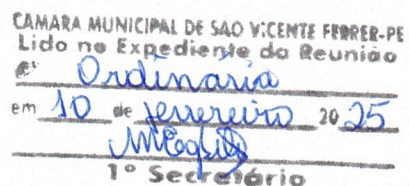 CAMARA MUNICIPAL DE SAO VICENTE FERRER-PE
Lido no Expediente da Reunião
Ordinária
em 10 de fevereiro 2025
1º Secretário